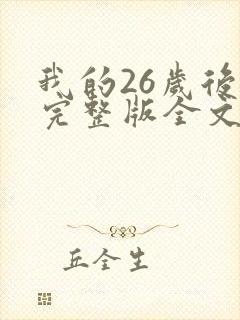 我的26歲後
完整版全文
丘全生